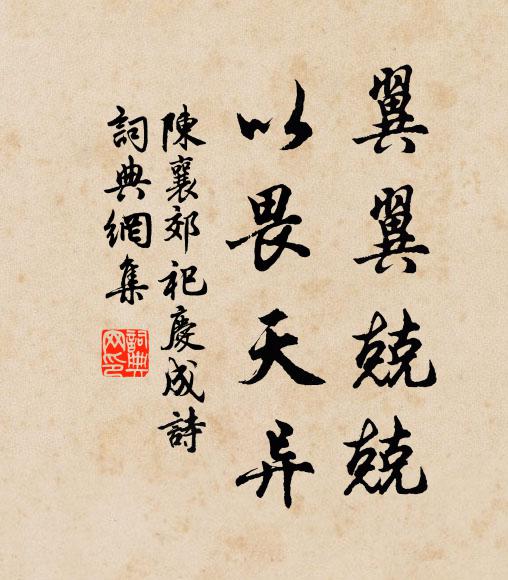 翼翼兢兢
以畏天异
陳襄郊祀慶成詩
詞典網集
詞典
网印